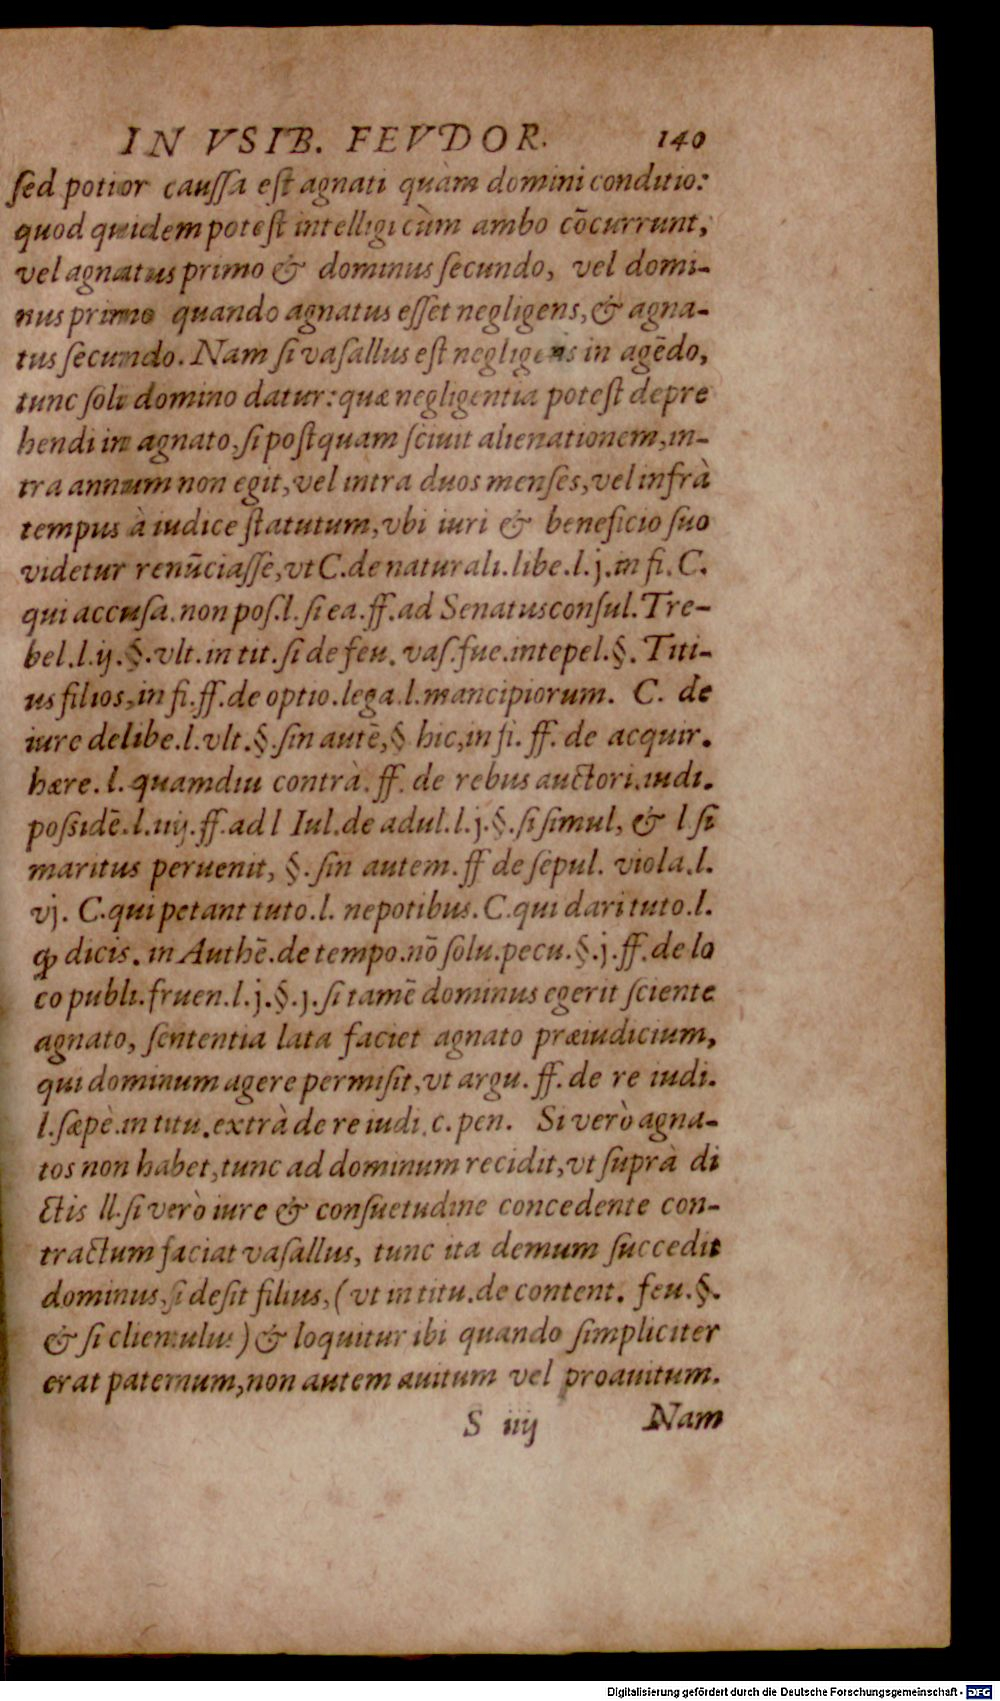 IN VSIB. FEVDOR. 140
sed potior caussa est agnati quàm domini conditio:
quod quidem potest intelligi cùm ambo cōcurrunt,
vel agnatus primo & dominus secundo, vel domi-
nus primo quando agnatus esset negligens, & agna-
tus secundo. Nam si vasallus est negligens in agēdo,
tunc soli domino datur: quæ negligentia potest depre
hendi in agnato, si postquam sciuit alienationem, in-
tra annum non egit, vel intra duos menses, vel infrà
tempus à iudice statutum, vbi iuri & beneficio suo
videtur renūciasse, vt C. de naturali. libe. l. j. in fi. C.
qui accusa. non pos. l. si ea. ff. ad Senatusconsul. Tre-
bel. l. ij. §. vlt. in tit. si de feu. vas. fue. intepel. §. Titi-
us filios, in fi. ff. de optio. lega. l. mancipiorum. C. de
iure delibe. l. vlt. §. sin autē, § hic, in fi. ff. de acquir.
hære. l. quamdiu contrà. ff. de rebus auctori. iudi.
possidē. l. iiij. ff. ad l Iul. de adul. l. j. §. si simul, & l. si
maritus peruenit, §. sin autem. ff de sepul. viola. l.
vj. C. qui petant tuto. l. nepotibus. C. qui dari tuto. l.
ꝙ dicis. in Authē. de tempo. nō solu. pecu. §. j. ff. de lo
co publi. fruen. l. j. §. j. si tamē dominus egerit sciente
agnato, sententia lata faciet agnato præiudicium,
qui dominum agere permisit, vt argu. ff. de re iudi.
l. sæpè. in titu. extrà de re iudi. c. pen. Si verò agna-
tos non habet, tunc ad dominum recidit, vt suprà di
ctis ll. si verò iure & consuetudine concedente con-
tractum faciat vasallus, tunc ita demum succedit
dominus, si desit filius, (vt in titu. de content. feu. §.
& si clientulus) & loquitur ibi quando simpliciter
erat paternum, non autem auitum vel proauitum.
S iiij Nam
Digitalisierung gefördert durch die Deutsche Forschungsgemeinschaft - DFG